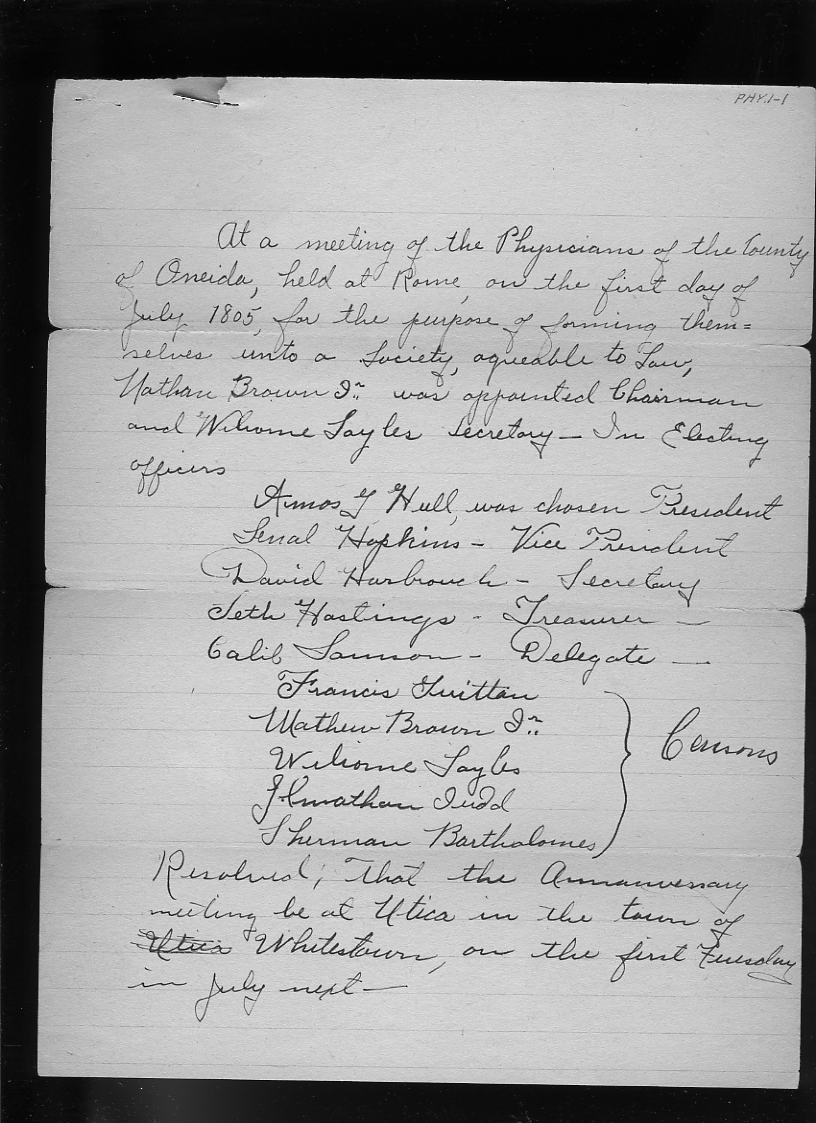 PHY.1-1
At a meeting of the Physicians of the County
of Oneida, held at Rome, on the first day of
July 1805, for the purpose of forming them=
selves unto a Society, agreable to Law,
Nathan Brown Jr. was appointed Chairman
and Welcome Sayles Secretary — In Electing
officers
Amos G Hull, was chosen President
Senal Hopkins - Vice President
David Hasbrouck - Secretary
Seth Hastings - Treasurer —
Calib Samson - Delegate —
Francis Guittau
Mathew Brown Jr.
Welcome Sayles
Jonathan Judd
Sherman Bartholomes
Censons
Resolved, That the Annanversary
meeting be at Utica in the town of
Utica Whitestown, on the first Tuesday
in July next —